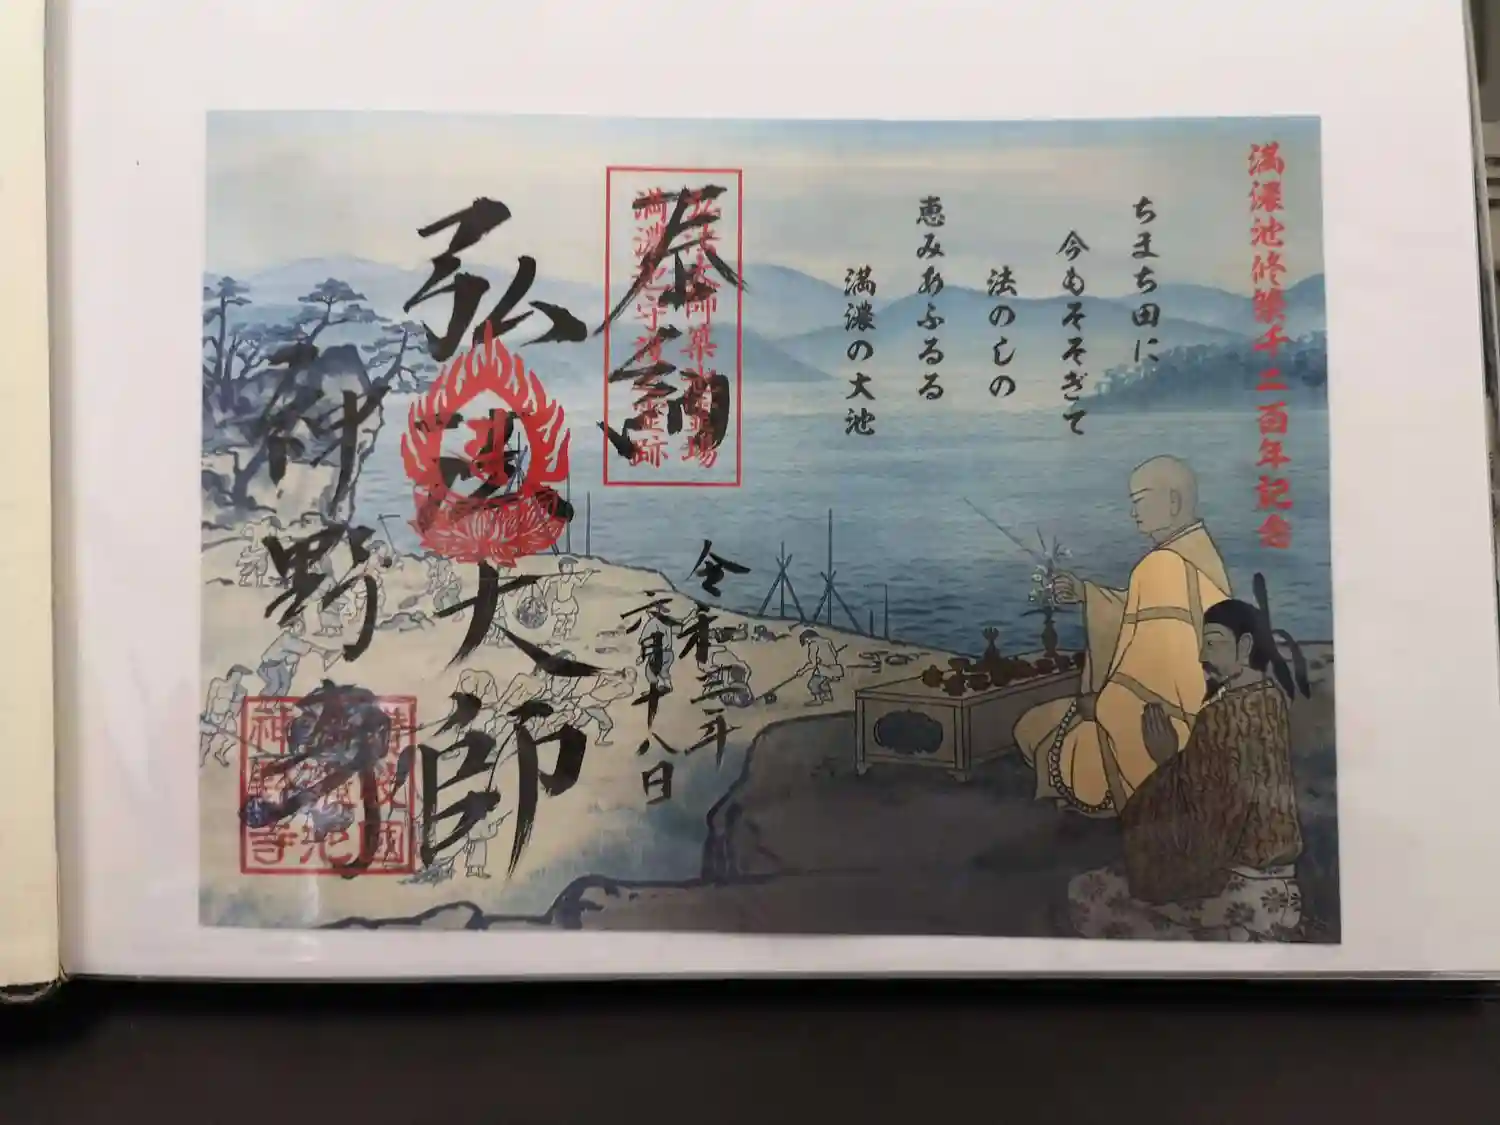 満濃池修築千二百年記念
ちまち田に
今もそそぎて
法のしの
恵みあふるる
満濃の大池
奉納
弘法大師築池霊場
満濃池守護之霊跡
令和三年
六月十八日
弘法大師
神野寺
讃岐國
満濃池
神野寺